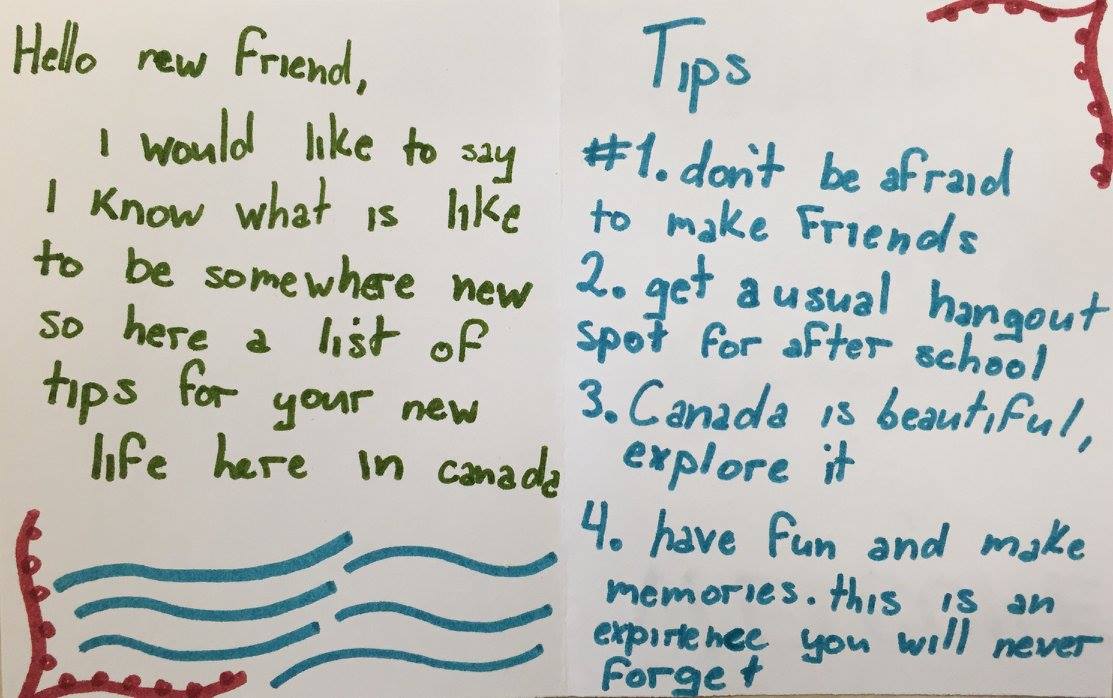 Hello new friend,
I would like to say
I know what is like
to be somewhere new
so here a list of
tips for your new
life here in canada
Tips
#1. don't be afraid
to make Friends
2. get a usual hangout
spot for after school
3. Canada is beautiful,
explore it
4. have fun and make
memories. this is an
expirience you will never
forget